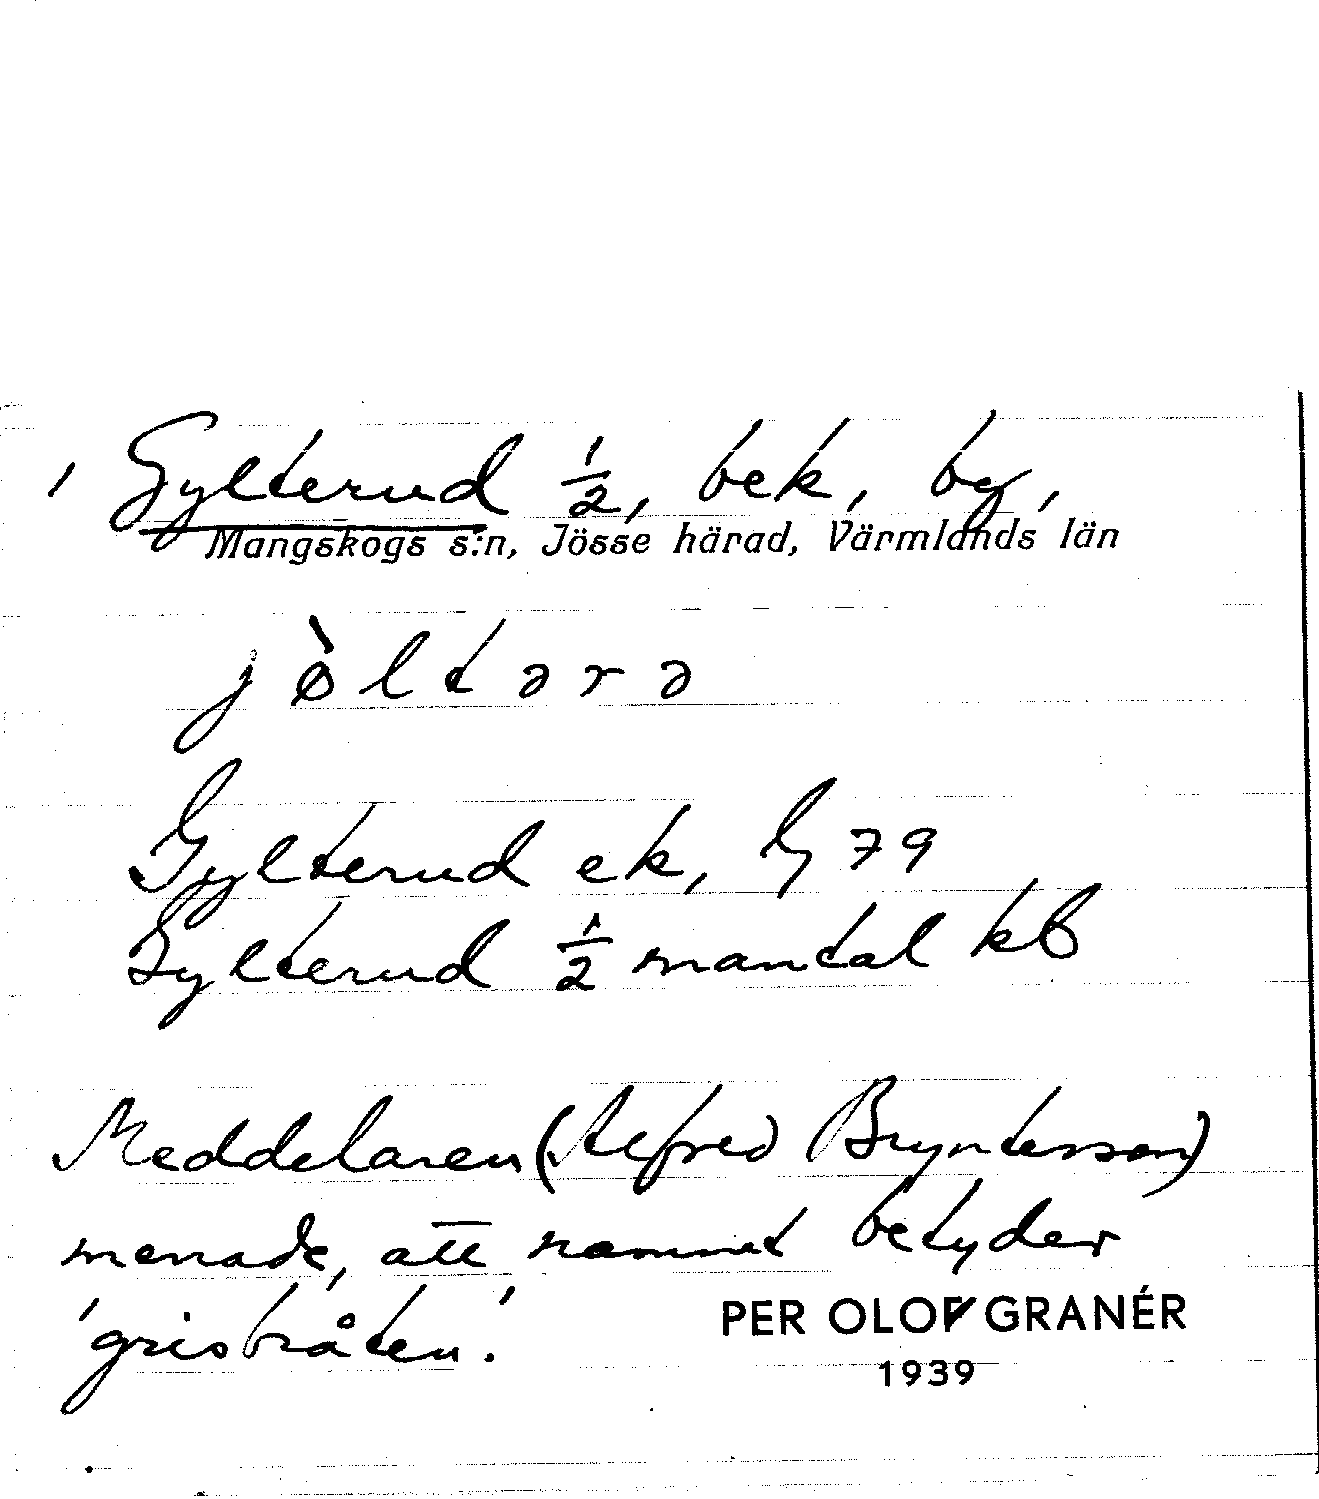 Gylterud ½, bek, by,
Mangskogs s:n, Jösse härad, Värmlands län
jø̀ltərə
Gylterud ek, G 79
Gylterud ½ mantal kb
Meddelaren (Alfred Bryntesson)
menade, att namnet betyder
'grisbråten'.
PER OLOF GRANÉR
1939